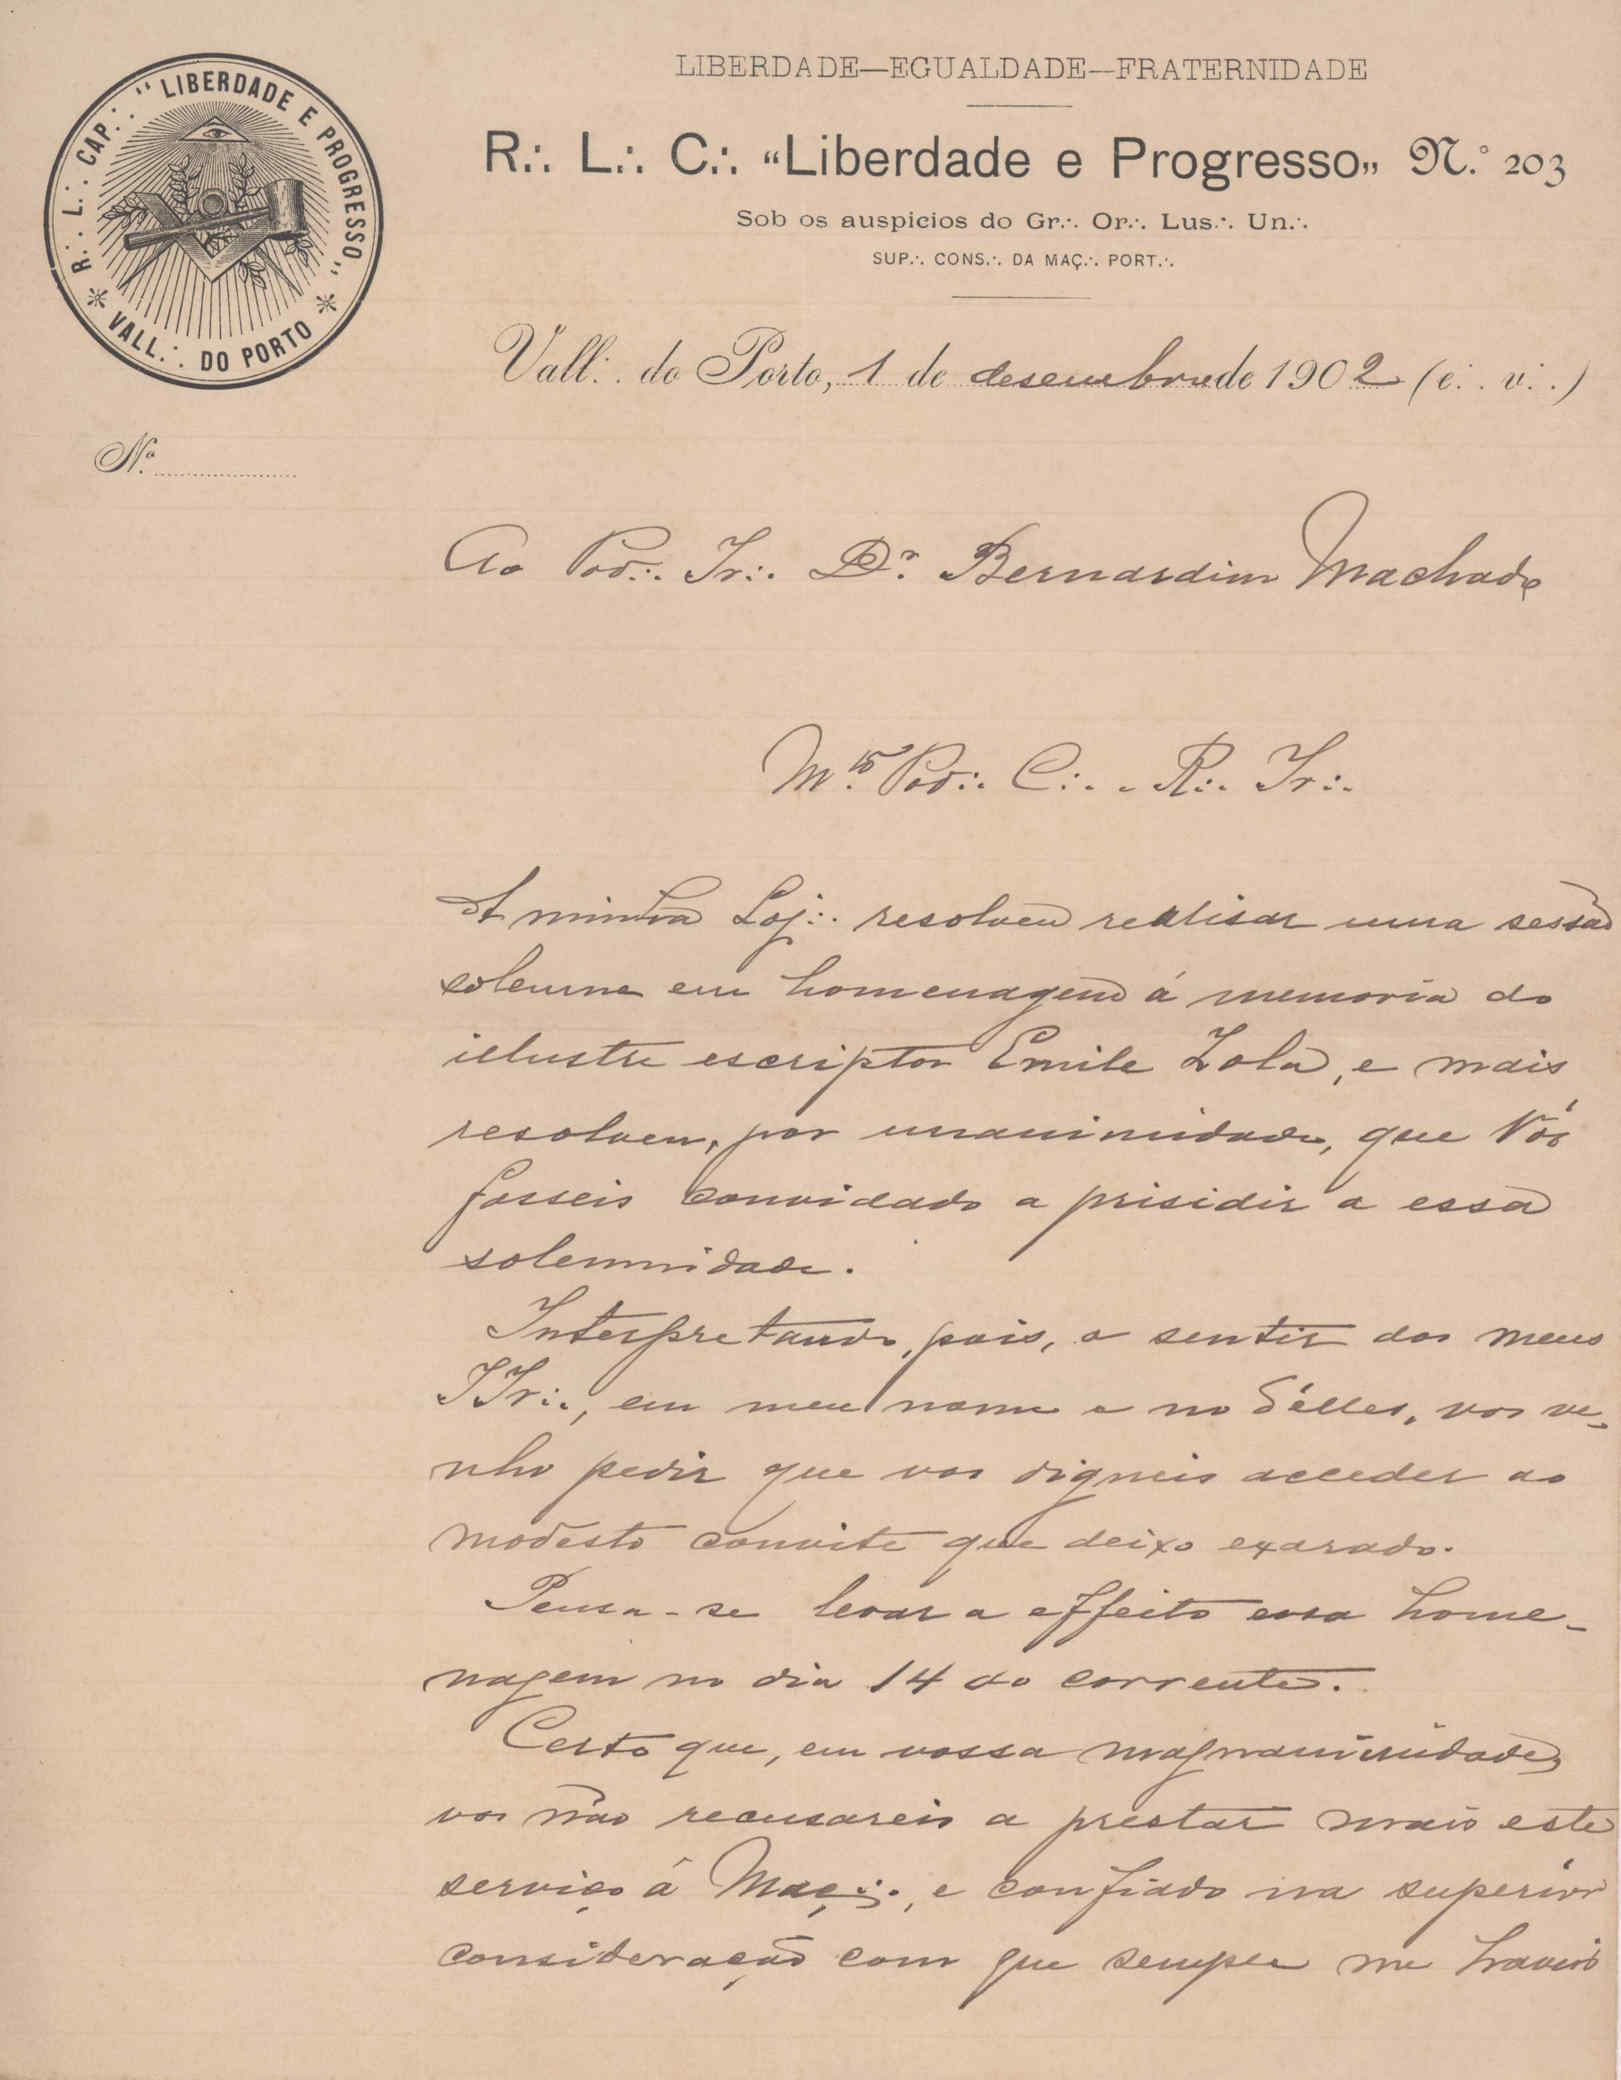 R∴ L∴ CAP∴ "LIBERDADE E PROGRESSO„
* VALL∴ DO PORTO *
LIBERDADE—EGUALDADE—FRATERNIDADE
R∴ L∴ C∴ "Liberdade e Progresso„ N.º 203
Sob os auspicios do Gr∴ Or∴ Lus∴ Un∴
SUP∴ CONS∴ DA MAÇ∴ PORT∴
Vall∴ do Porto, 1 de desembro de 1902 (e∴ v∴)
N.º
Ao Pod∴ Ir∴ Dr. Bernardim Machado
M.to Pod∴ C∴ e R∴ Ir∴
A minha Loj∴ resolveu realisar uma sessão
solemne em homenagem á memoria do
illustre escriptor Emile Zola, e mais
resolveu, por unanimidade, que Vós
fosseis convidado a prisidir a essa
solemnidade.
Interpretando, pois, o sentir dos meus
IIr∴, em meu nome e no d'élles, vos ve-
nho pedir que vos digneis acceder ao
modesto convite que deixo exarado.
Pensa-se levar a effeito essa home-
nagem no dia 14 do corrente.
Certo que, em vossa magnanimidade,
vos não recusareis a prestar mais este
serviço á Maç∴, e confiado na superior
consideração com que sempre me haveis